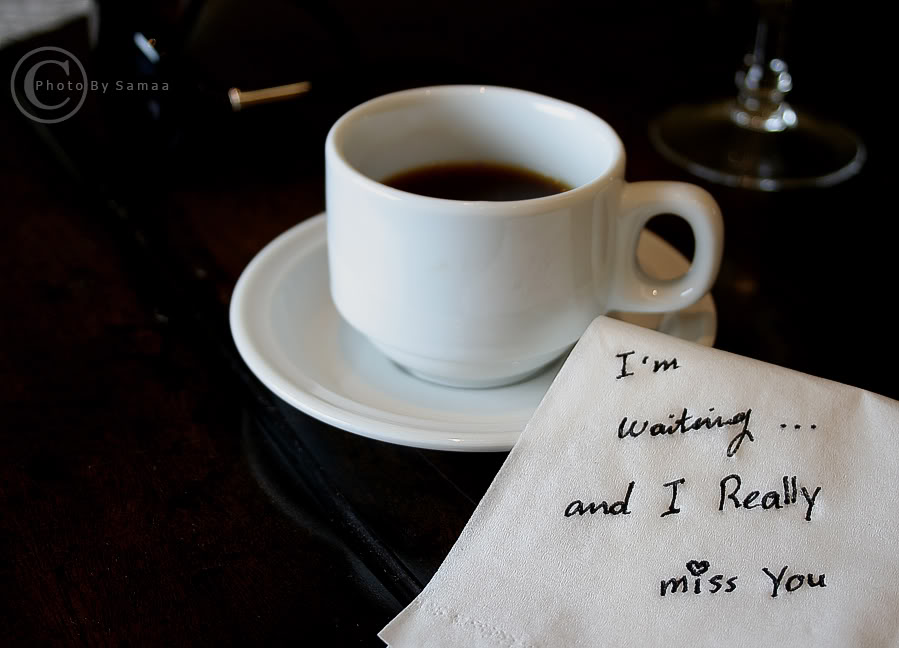 © Photo By Samaa
I'm
waiting ...
and I Really
miss You